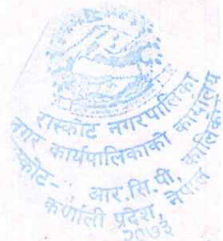 रास्कोट नगरपालिका
नगर कार्यपालिकाको कार्यालय
स्कोट- आर.सि.पी. कालिकोट
कर्णाली प्रदेश, नेपाल
२०७३